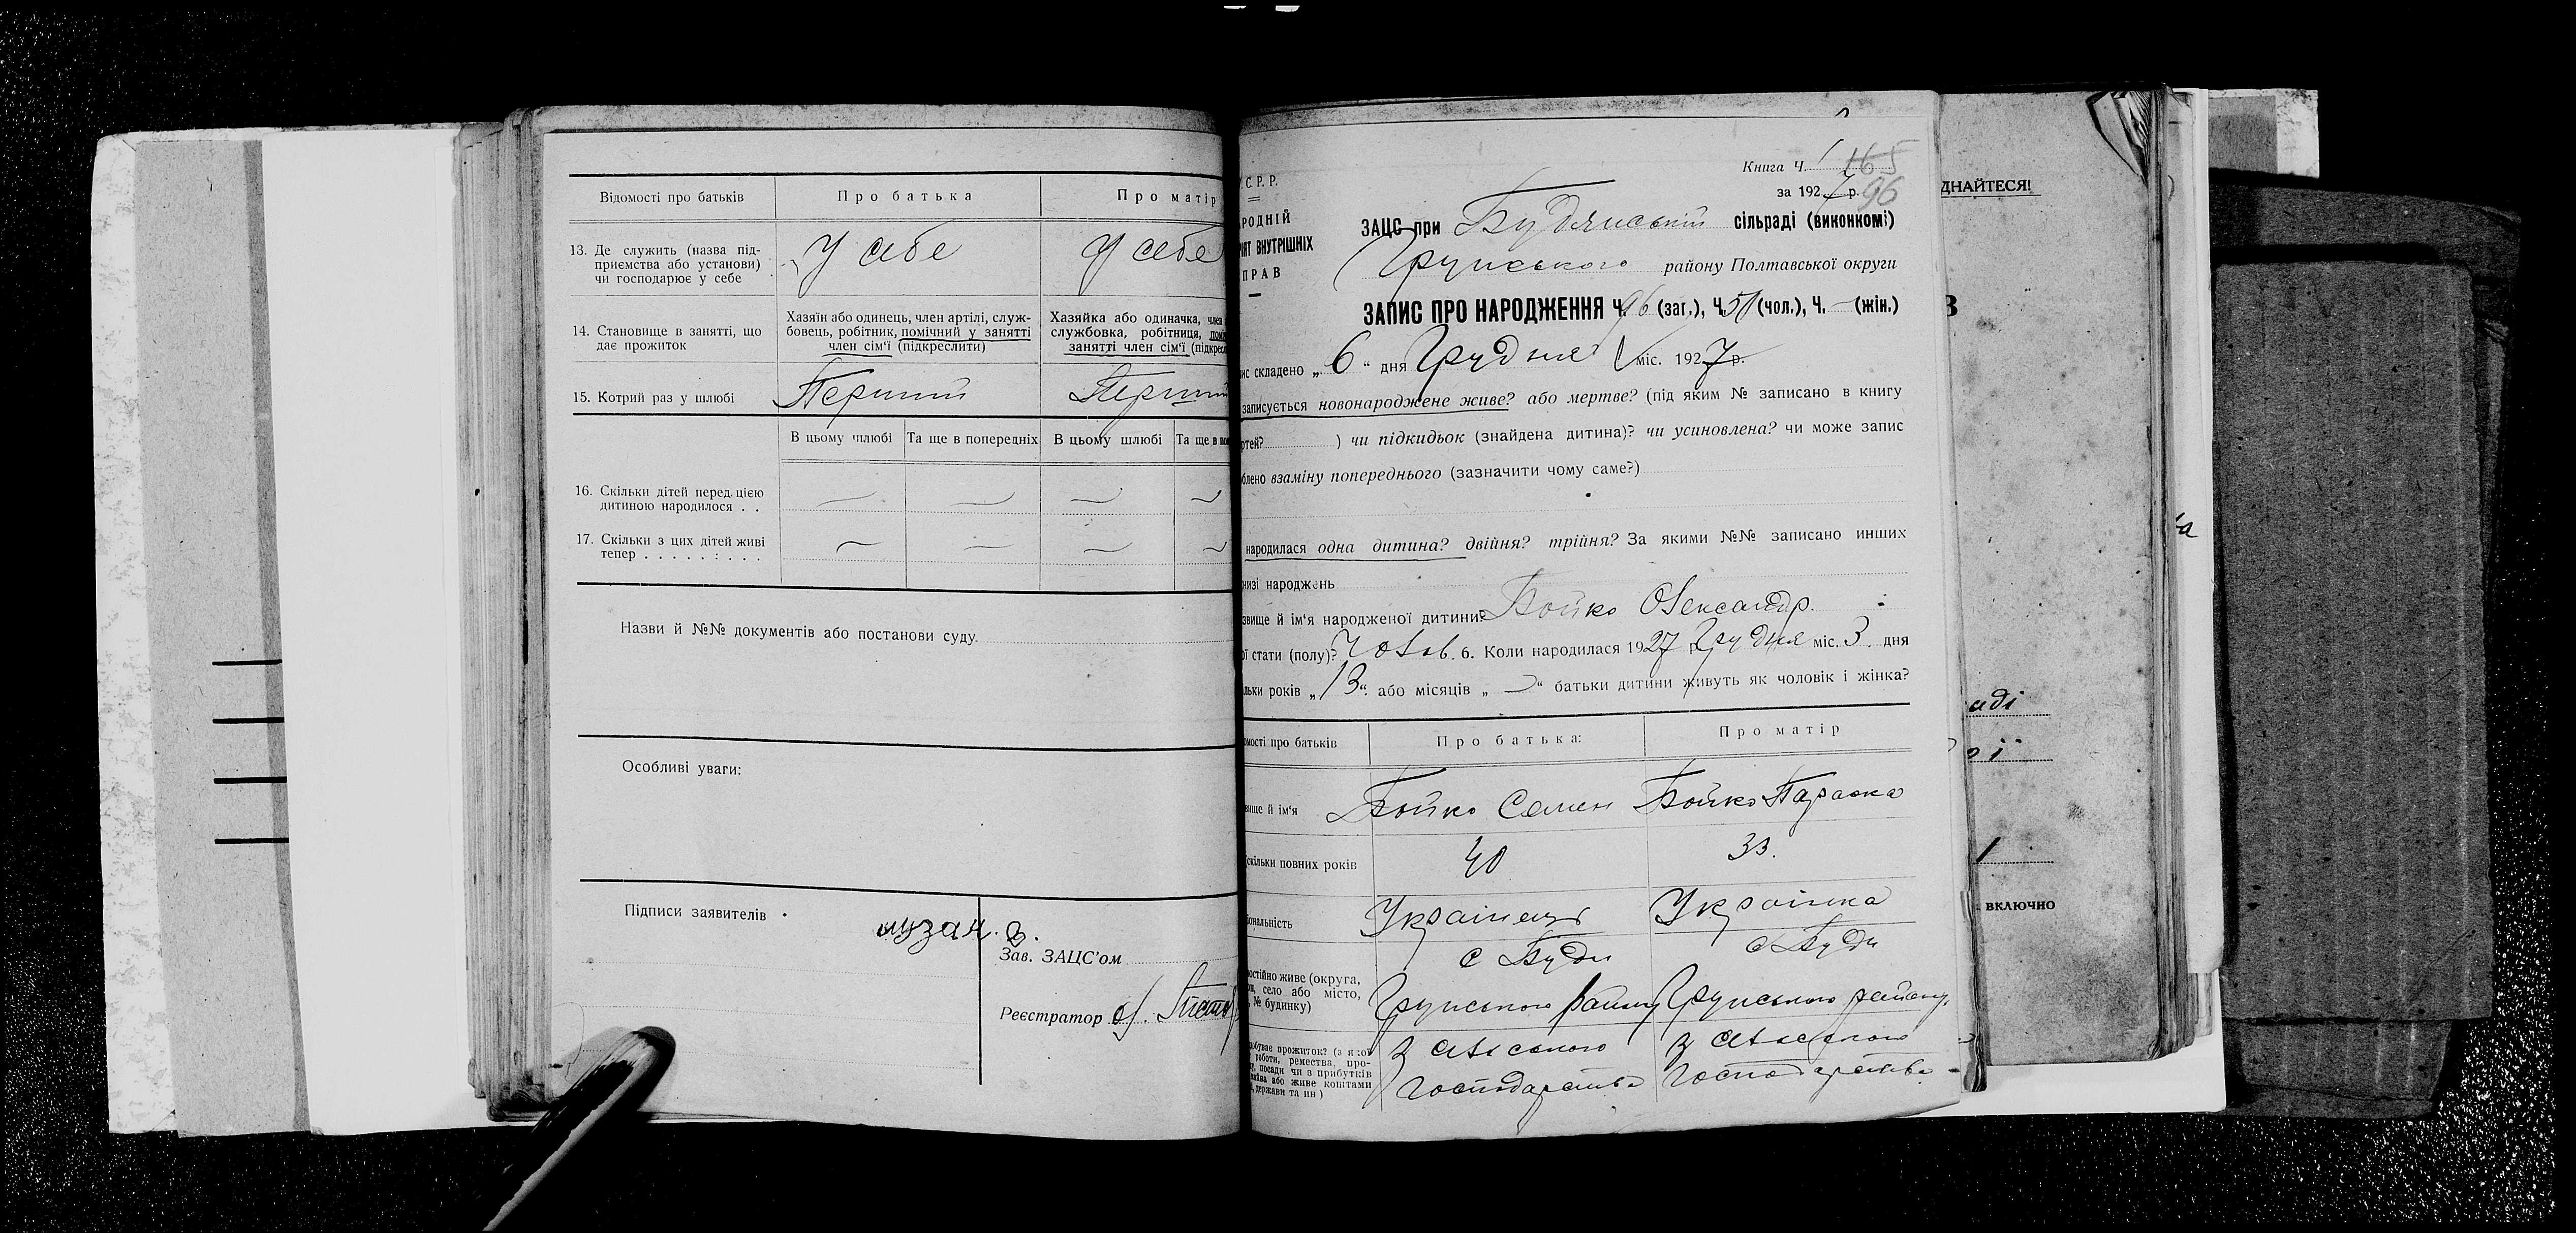 Відомості про батьків
Про батька
Про матір
13. Де служить (назва під-
приємства або установи)
чи господарює у себе
У себе
У себе
14. Становище в занятті, що
дає прожиток
Хазяїн або одинець, член артілі, служ-
бовець, робітник, помічний у занятті
член сім'ї (підкреслити)
Хазяйка або одиначка, член
службовка, робітниця, пом
занятті член сім'ї (підкрес
15. Котрий раз у шлюбі
Перший
Перший
В цьому шлюбі
Та ще в попередніх
В цьому шлюбі
Та ще в по
16. Скільки дітей перед цією
дитиною народилося . .
— — — —
17. Скільки з цих дітей живі
тепер . . . . . : . . .
— — — —
Назви й №№ документів або постанови суду.
Особливі уваги:
Підписи заявителів
Зав. ЗАЦС'ом
Реєстратор
Книга Ч. 1 165
за 1927 р. 96
С. Р. Р.
РОДНІЙ
ІЯТ ВНУТРІШНІХ
ПРАВ
ЗАЦС при Будянській сільраді (виконкомі)
Грунського району Полтавської округи
ЗАПИС ПРО НАРОДЖЕННЯ Ч. 96 (заг.), Ч. 51 (чол.), Ч. — (жін.)
ис складено „6" дня Грудня міс. 1927 р.
записується новонароджене живе? або мертве? (під яким № записано в книгу
ртей? ) чи підкидьок (знайдена дитина)? чи усиновлена? чи може запис
блено взаміну попереднього (зазначити чому саме?)
народилася одна дитина? двійня? трійня? За якими №№ записано инших
низі народжень
звище й ім'я народженої дитини? Бойко Олександр.
ої стати (полу)? Чолов. 6. Коли народилася 1927 р. Грудня міс. 3 дня
льки років „13" або місяців „—" батьки дитини живуть як чоловік і жінка?
омості про батьків
Про батька:
Про матір
вище й ім'я
Бойко Семен
Бойко Параска
скільки повних років
40
33.
іональність
Українець
Українка
остійно живе (округа,
он, село або місто,
№ будинку)
с Буди
Грунського району
с Буди
Грунського району
обуває прожиток? (з якої
роботи, ремества, про-
, посади чи з прибутків
майна або живе коштами
, держави та ин)
З сільського
господарства
З сільського
господарства
ДНАЙТЕСЯ!
В
аді
ої
1
ВКЛЮЧНО